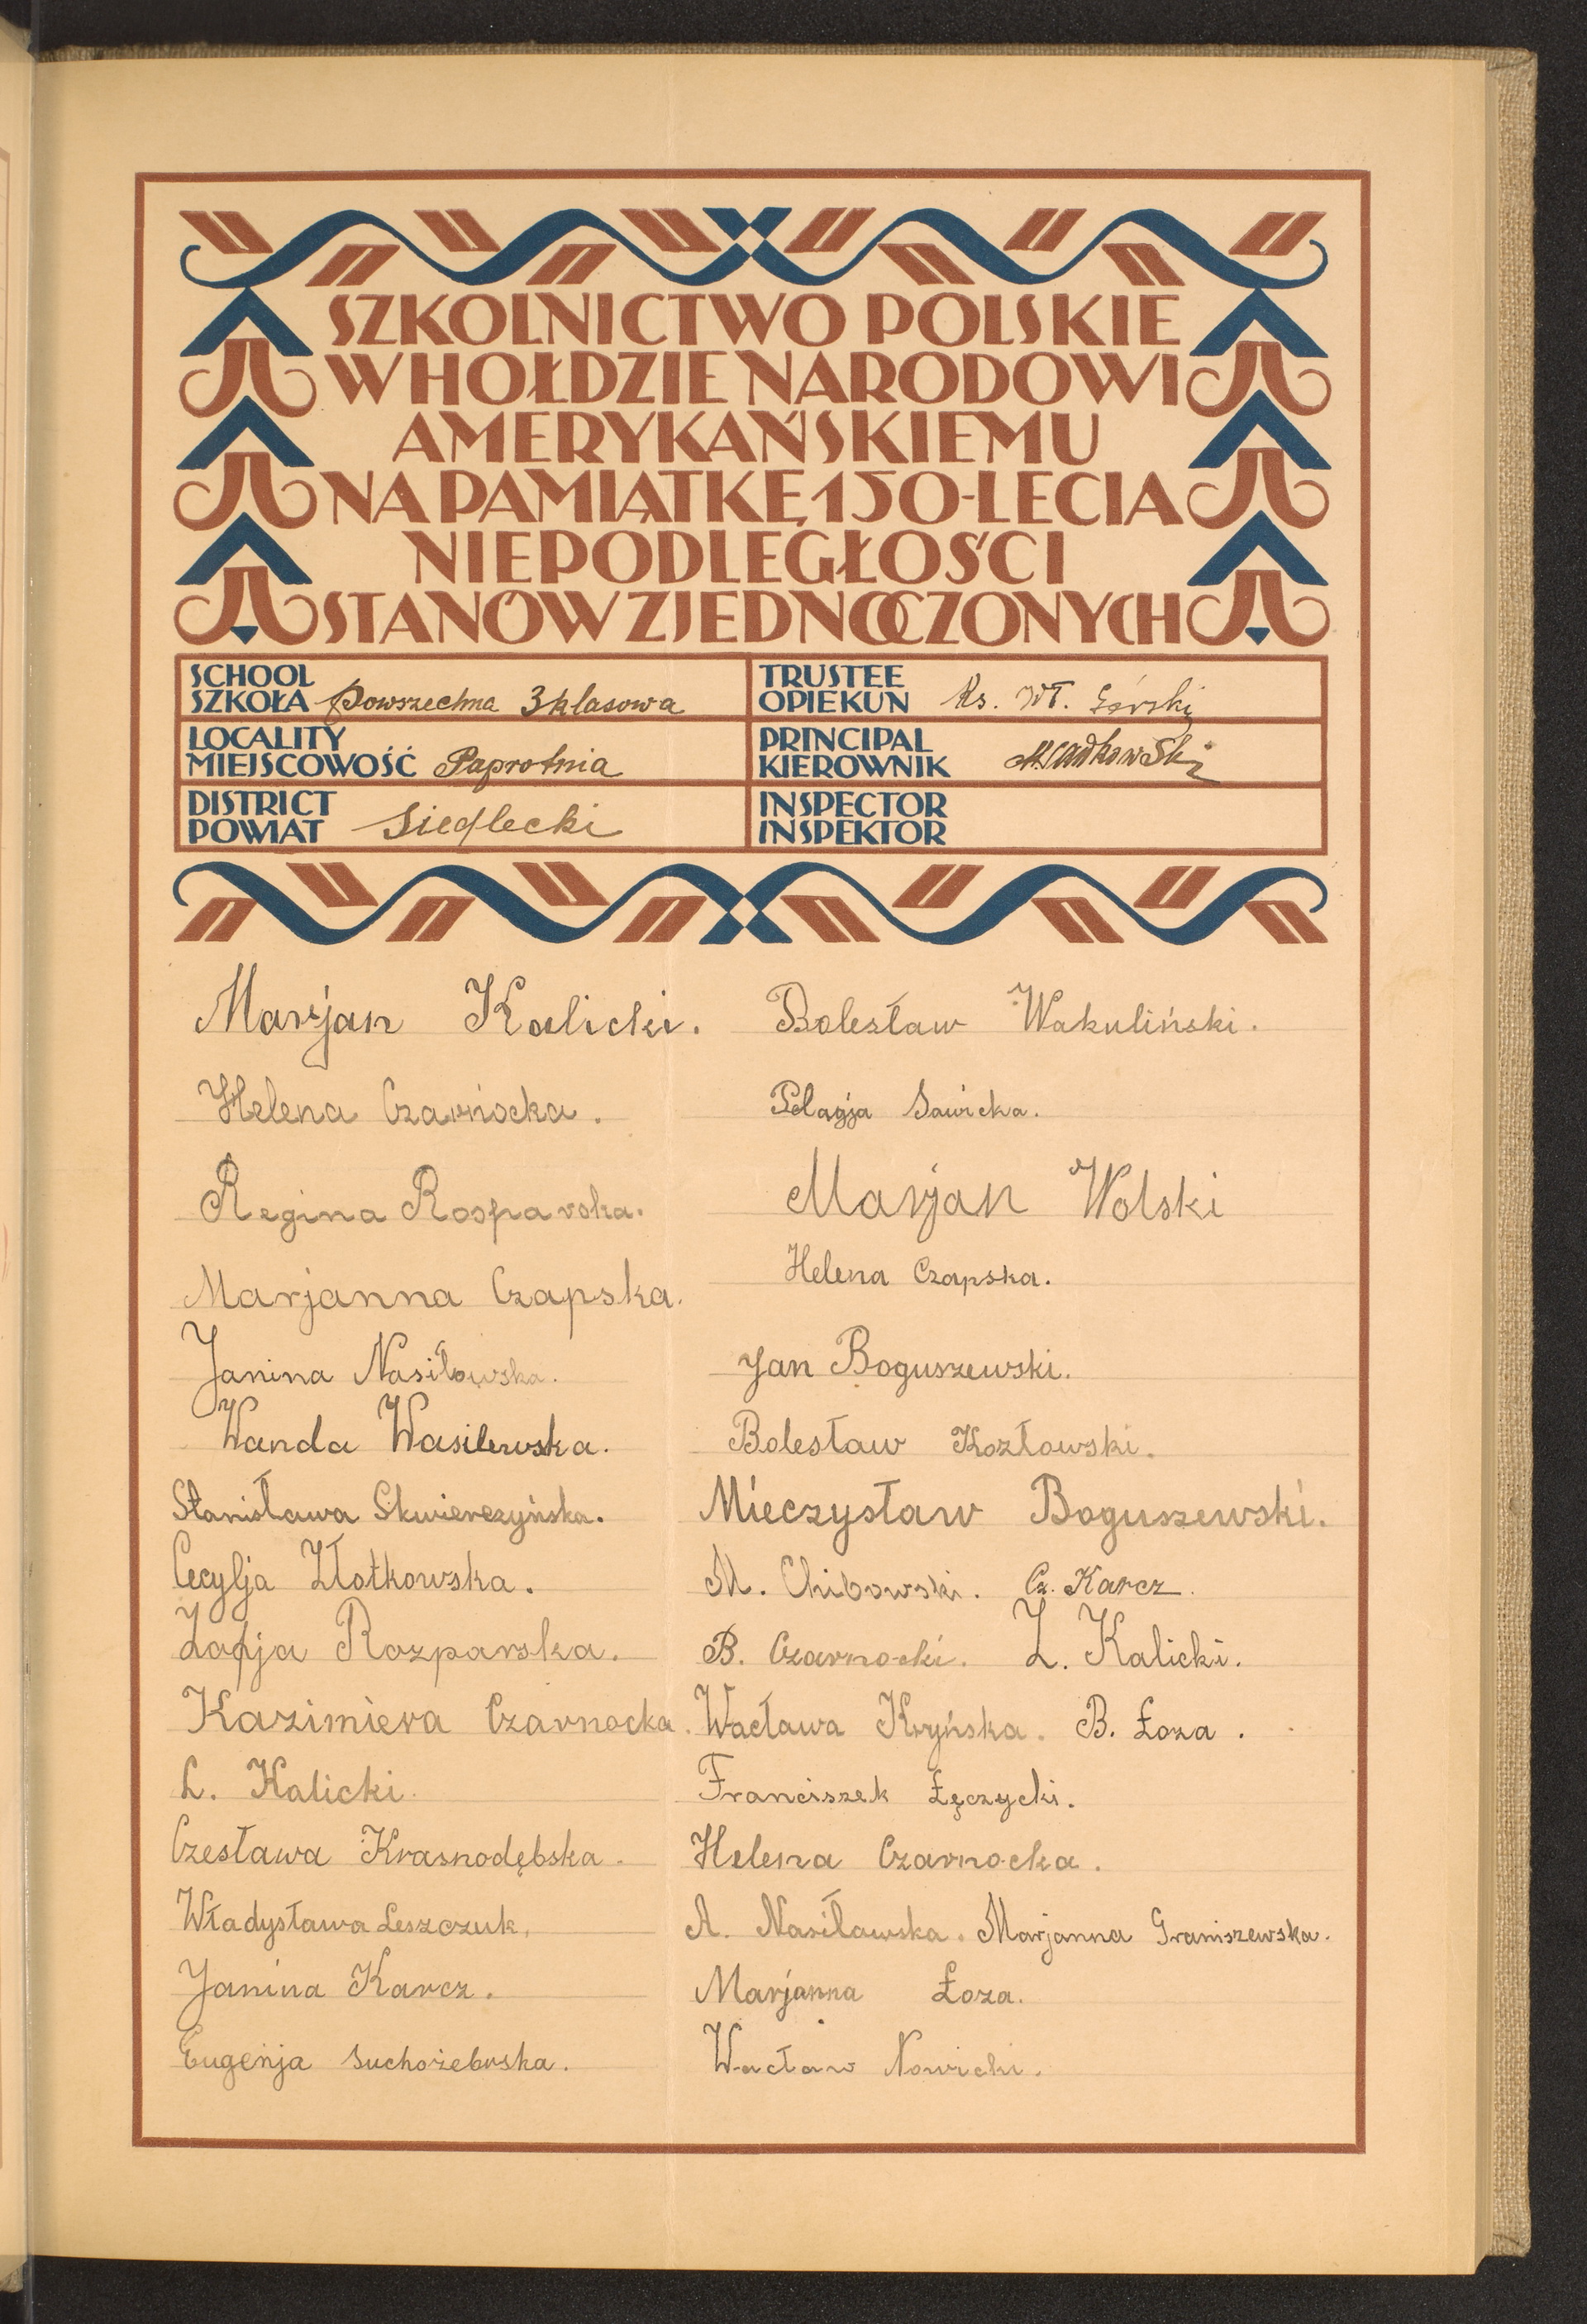 SZKOLNICTWO POLSKIE
W HOŁDZIE NARODOWI
AMERYKAŃSKIEMU
NA PAMIĄTKĘ 150-LECIA
NIEPODLEGŁOŚCI
STANÓW ZJEDNOCZONYCH
SCHOOL
SZKOŁA Powszechna 3 klasowa
TRUSTEE
OPIEKUN Ks. Wł. Górski
LOCALITY
MIEJSCOWOŚĆ Paprotnia
PRINCIPAL
KIEROWNIK
DISTRICT
POWIAT Siedlecki
INSPECTOR
INSPEKTOR
Marjan Kalicki.
Helena Czarnocka.
Regina Rosparska.
Marjanna Czapska.
Janina Nasiłowska.
Wanda Wasilewska.
Stanisława Skwierczyńska.
Cecylja Złotkowska.
Zofja Rozparska.
Kazimiera Czarnocka.
L. Kalicki.
Czesława Krasnodębska.
Władysława Leszczuk.
Janina Karcz.
Eugenja Suchożebrska.
Bolesław Wakuliński.
Pelagja Sawicka.
Marjan Wolski
Helena Czapska.
Jan Boguszewski.
Bolesław Kozłowski.
Mieczysław Boguszewski.
M. Chibowski. Cz. Karcz.
B. Czarnocki. Z. Kalicki.
Wacława Kryńska. B. Łoza.
Franciszek Łęczycki.
Helena Czarnocka.
A. Nasiławska. Marjanna Graniszewska.
Marjanna Łoza.
Wacław Nowicki.